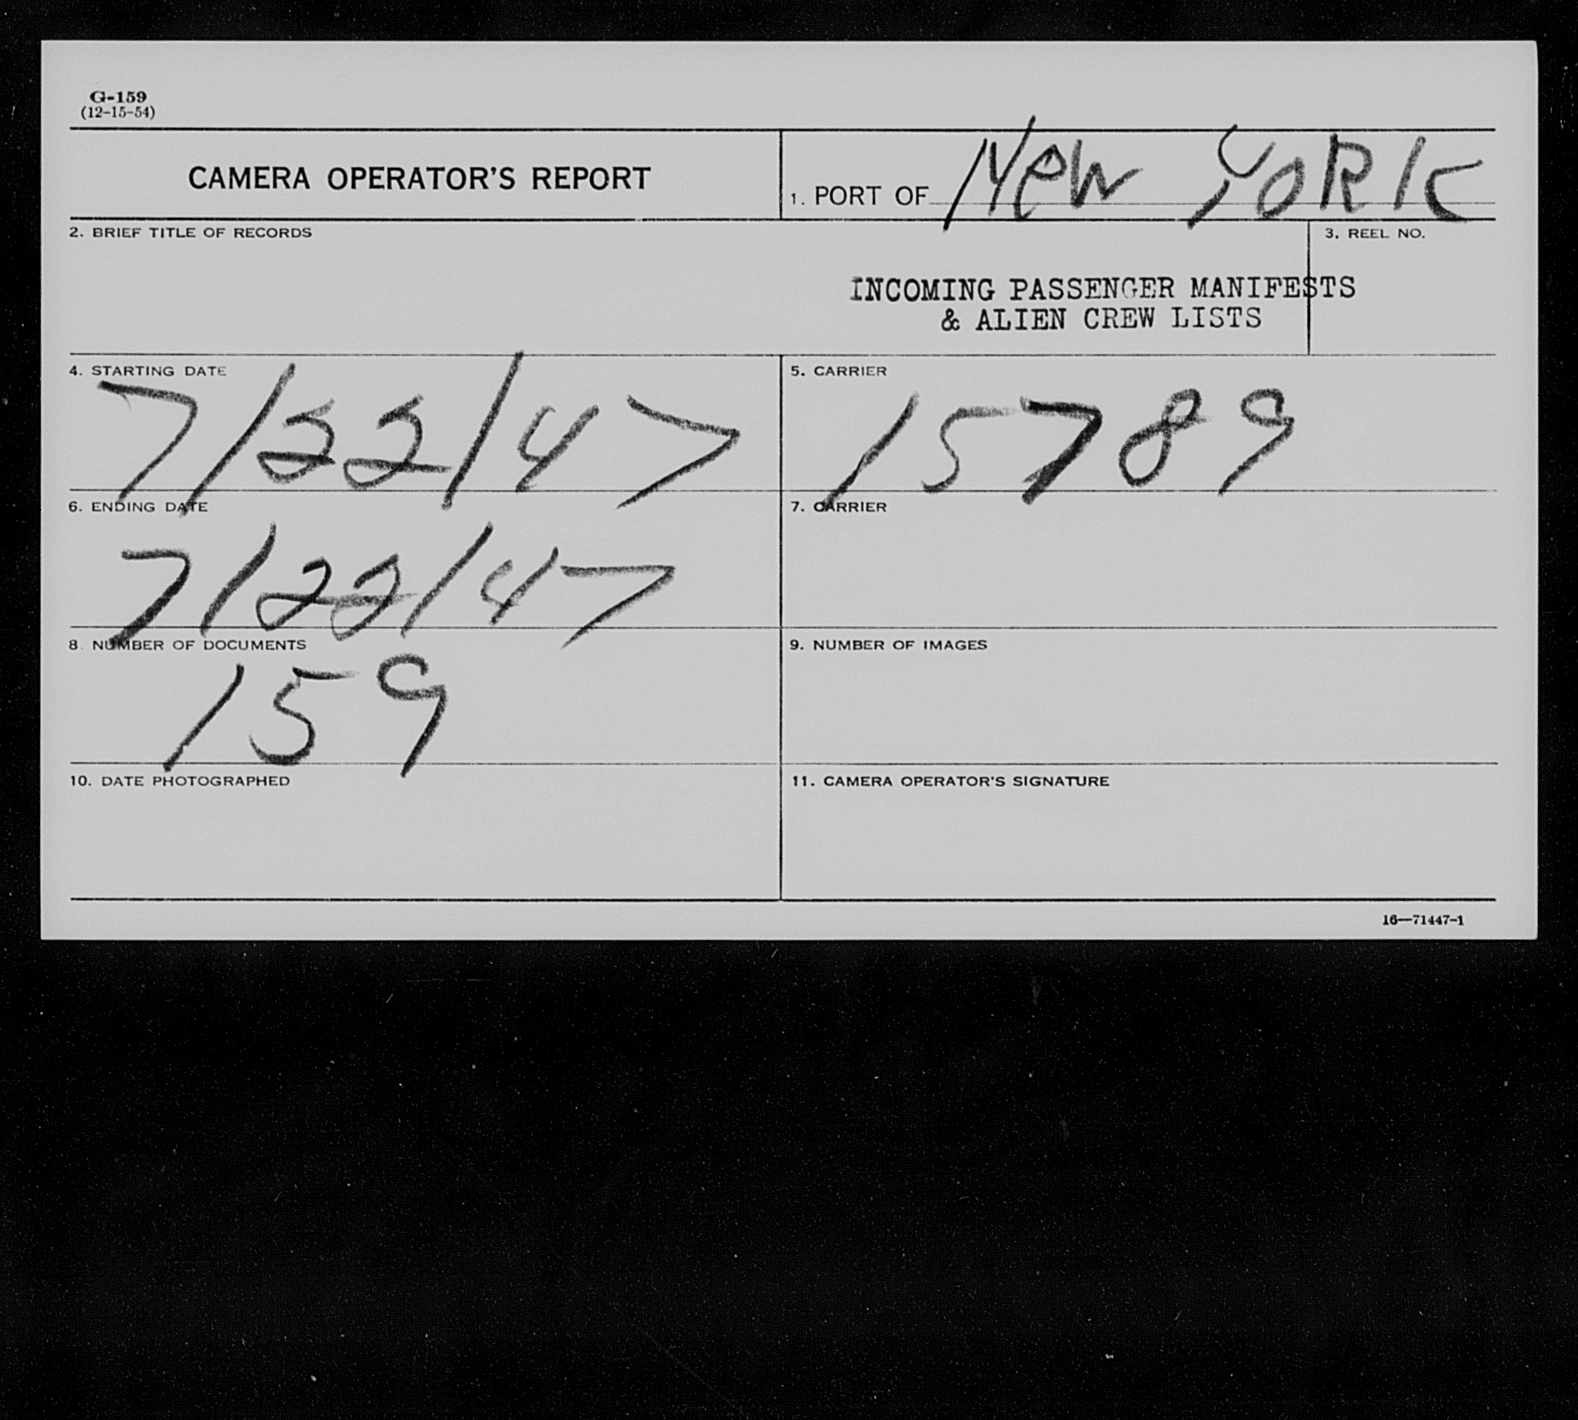 G-159
(12-15-54)
CAMERA OPERATOR'S REPORT
1. PORT OF NEW YORK
2. BRIEF TITLE OF RECORDS
3. REEL NO.
INCOMING PASSENGER MANIFESTS
& ALIEN CREW LISTS
4. STARTING DATE
7/22/47
5. CARRIER
15789
6. ENDING DATE
7/22/47
7. CARRIER
8. NUMBER OF DOCUMENTS
159
9. NUMBER OF IMAGES
10. DATE PHOTOGRAPHED
11. CAMERA OPERATOR'S SIGNATURE
16—71447-1